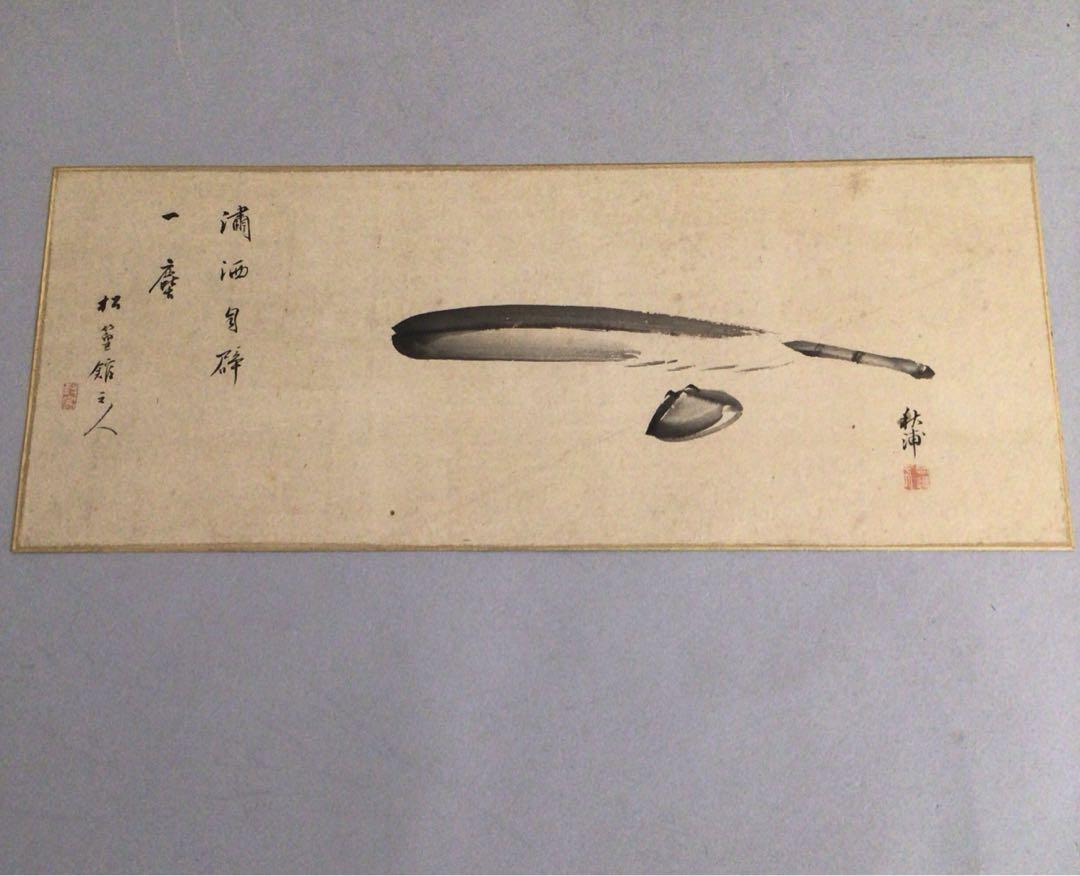 秋浦
瀟洒自辟
一塵
松篁館主人